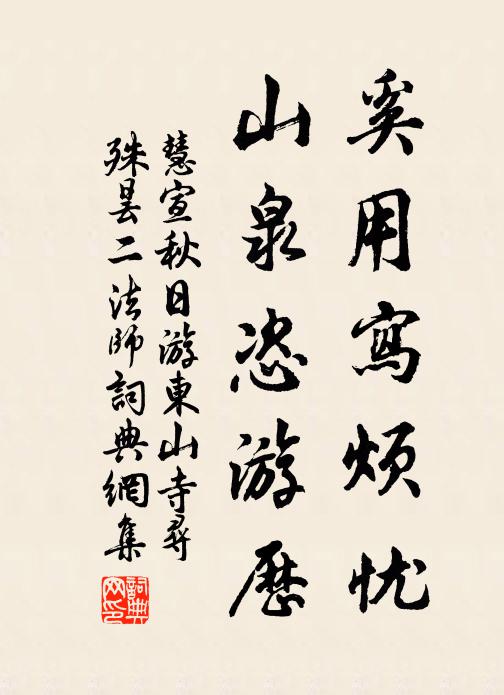 奚用寫煩忧
山泉恣游歷
慧宣秋日游東山寺尋
殊昙二法師詞典網集
詞典網印